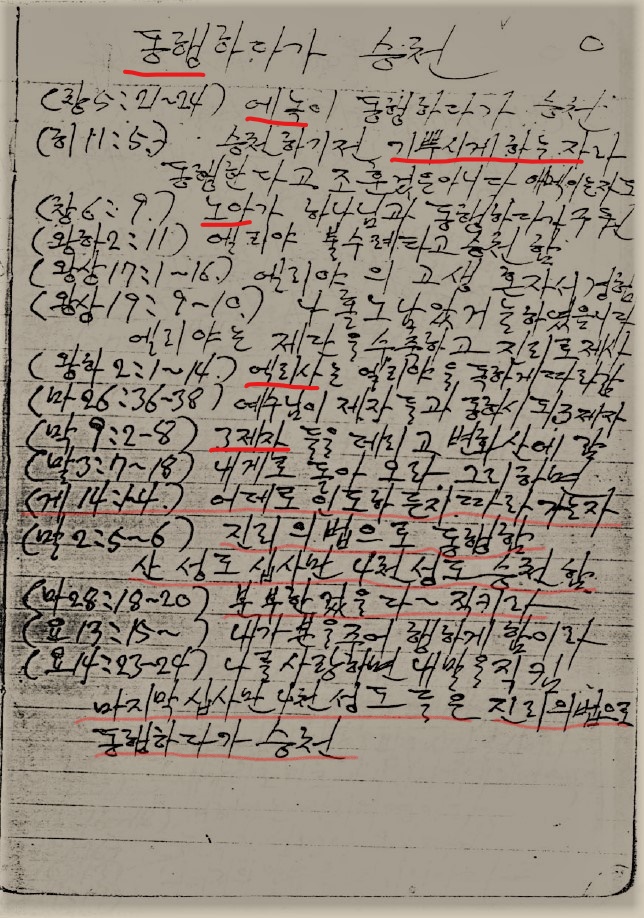 동행하다가 승천
(창5:21~24) 에녹이 동행하다가 승천
(히11:5) 승천하기전 기쁘시게하는 자라
동행한다고 조흔것은아니다
(창6:9) 노아가 하나님과 동행하다가
(왕하2:11) 엘리야 불수레타고 승천함
(왕상17:1~16) 엘리야의 고생 혼자서 경험
(왕상19:9~10)
엘리야는 제단을 수축하고 진리로제사
(왕하2:1~14) 엘리사는 엘리야를 독하게따라감
(마26:36~38) 예수님이 제자들과 동행시도3제자
(막9:2~8) 3제자들을 데리고 변화산에 감
(말3:7~18) 내게로 돌아오라 그리하면
(계14:1~4) 어데로 인도하든지 따라가는자
(말2:5~6) 진리의법으로 동행함
산 성도 십사만 사천성도 승천함
(마28:18~20) 분부한것을 다~ 직키라
(요13:15~) 내가 본을주어 행하게 함이라
(요14:23~24) 나를사랑하면 내말을직킴
마지막 십사만사천성도들은 진리의법으로
동행하다가 승천